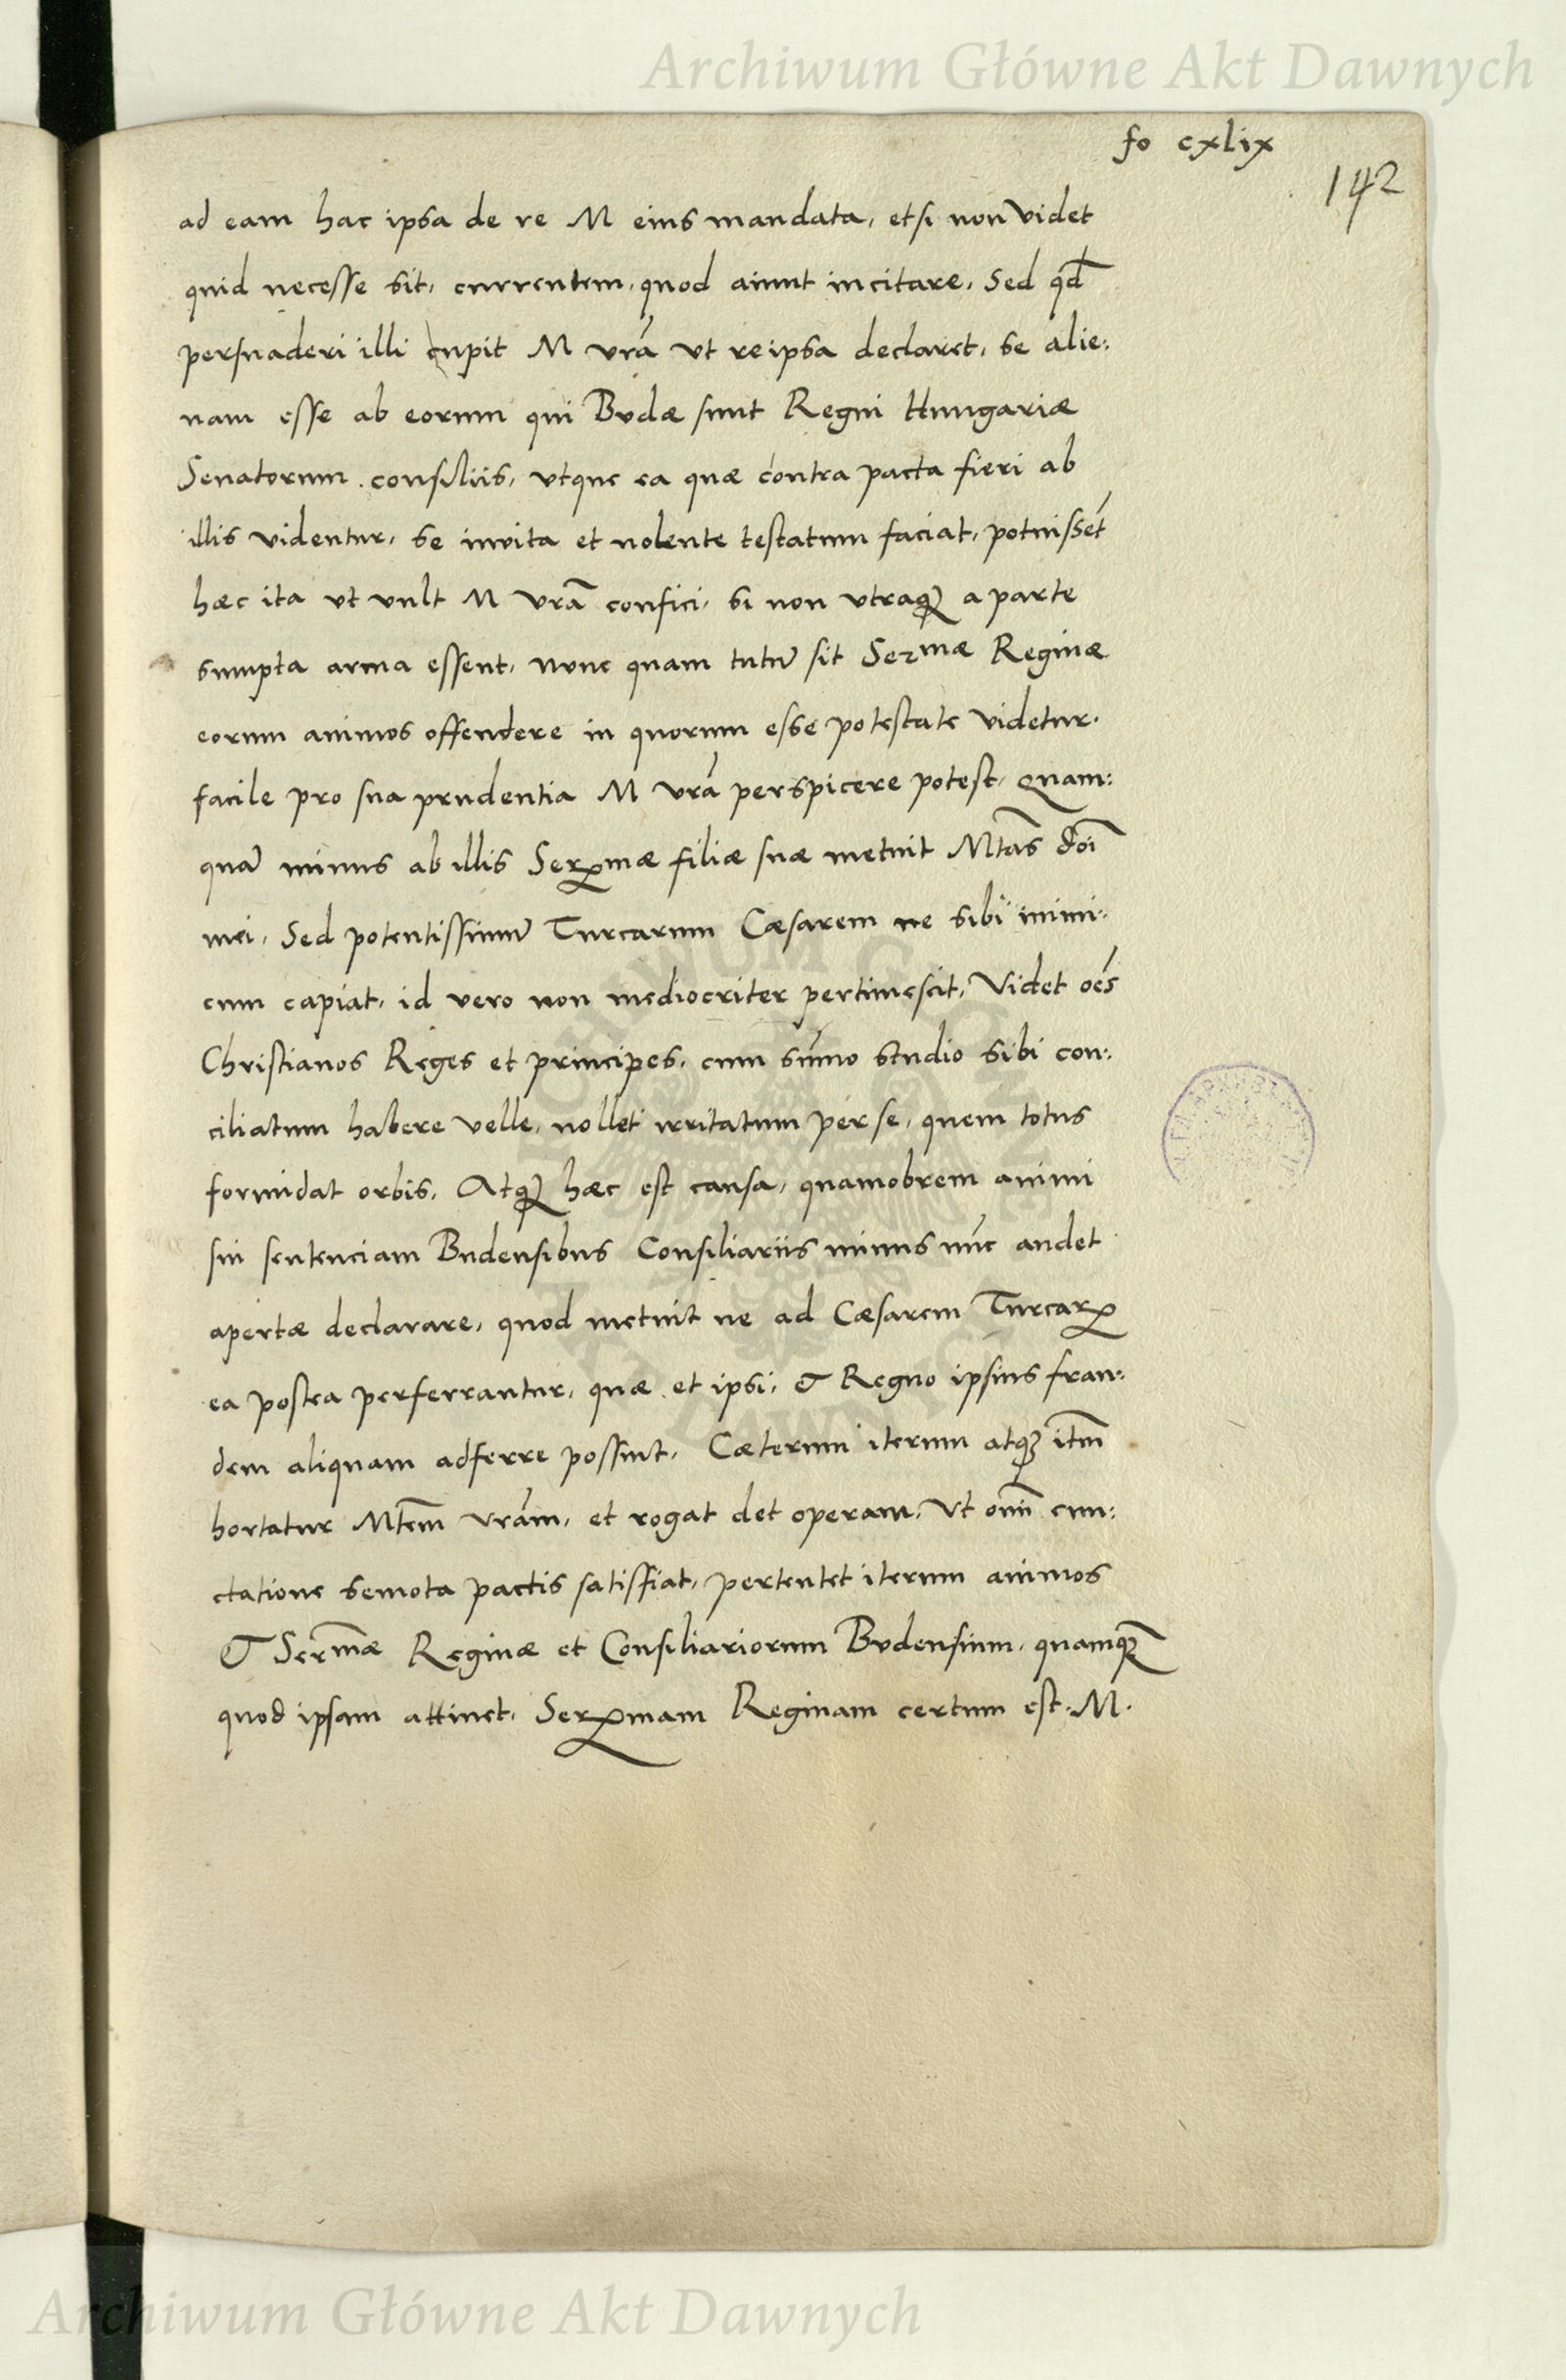 Archiwum Główne Akt Dawnych
fo cxlix
142
ad eam hac ipsa de re M eius mandata, etsi non videt
quid necesse sit, currentem, quod aiunt incitare, Sed qd̃
persuaderi illi cupit M vrã vt reipsa declaret, se alie:
nam esse ab eorum qui Budæ sunt Regni Hungariæ
Senatorum consiliis, vtque ea quæ contra pacta fieri ab
illis videntur, se invita et nolente testatum faciat, potuisset
hæc ita vt vult M vrã confici, si non vtraq; a parte
sumpta arma essent, nunc quam tutũ sit Sermæ Reginæ
eorum animos offendere in quorum esse potestate videtur.
facile pro sua prudentia M vrã perspicere potest, Quam:
quã minus ab illis Serꝫmæ filiæ suæ metuit Mtãs dõi
mei, Sed potentissimũ Turcarum Cæsarem ne sibi inimi:
cum capiat, id vero non mediocriter pertimescit, Videt oẽs
Christianos Reges et principes, cum sũmo studio sibi con:
ciliatum habere velle, nollet irritatum per se, quem totus
formidat orbis, Atq; hæc est causa, quamobrem animi
sui sentenciam Budensibus Consiliariis minus nũc audet
apertæ declarare, quod metuit ne ad Cæsarem Turcarꝫ
ea postea perferrantur, quæ et ipsi, & Regno ipsius frau:
dem aliquam adferre possint, Cæterum iterum atq; itm̃
hortatur Mtem̃ vrãm, et rogat det operam, Vt omñi cun:
ctatione semota pactis satisfiat, pertentet iterum animos
& Serm̃æ Reginæ et Consiliariorum Budensium, quamq;
quod ipsam attinet, Serꝫmam Reginam certum est. M.
Archiwum Główne Akt Dawnych